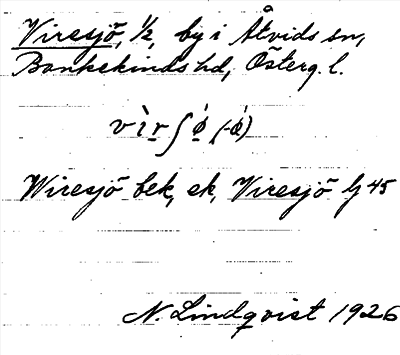 Viresjö, 1/2, by i Åtvids sn,
Bankekinds hd, Österg. l.
vìrʃǿ (-ǿ)
Wiresjö bek, ek, Viresjö lj 45
N. Lindqvist 1926